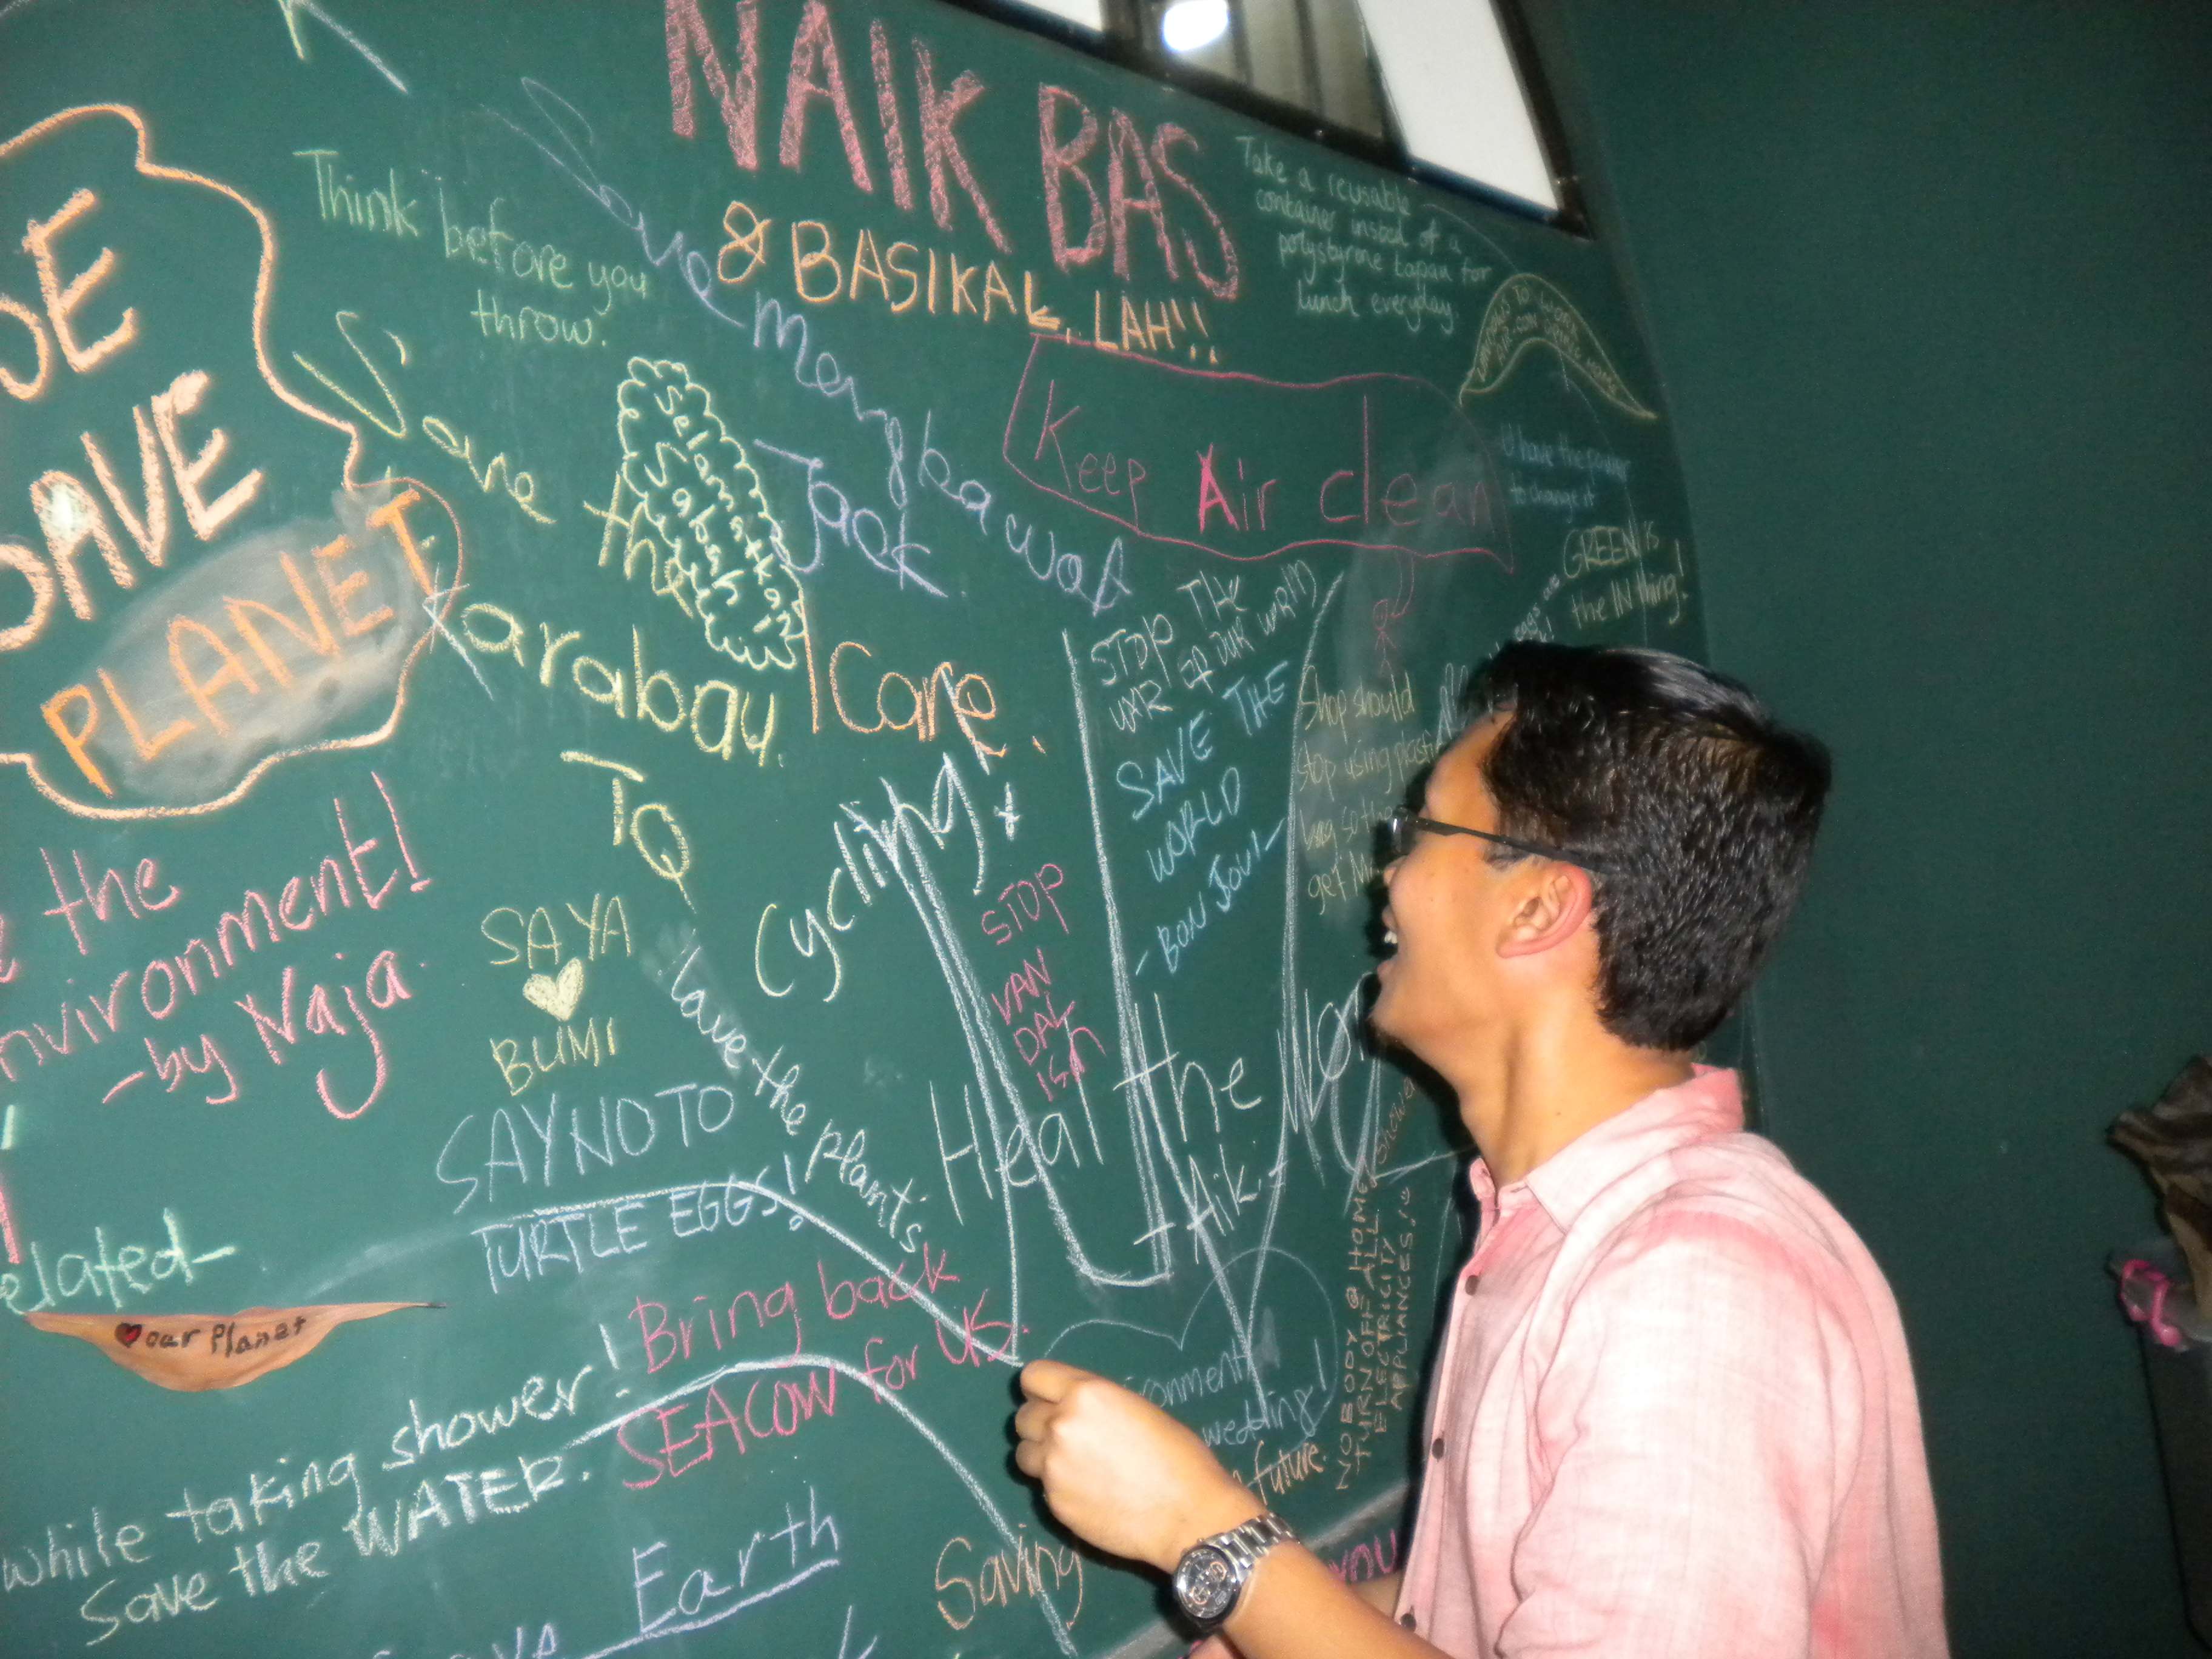 NAIK BAS
& BASIKAL, LAH!!
Take a reusable
container insted of a
polystyrene tapau for
lunch everyday
Think before you
throw.
SAVE
PLANET
Save the
Karabau.
Save Mengbawok
Jack
Keep Air clean
U have the power
to change it
GREEN is
the IN thing!
I Care.
STOP THE
WAR IN OUR WORLD
SAVE THE
WORLD
- BON JOVI -
Shop should
stop using
TQ
Cycling
STOP
VAN
DAL
ISM
the
nvironment!
- by Naja.
SAYA
BUMI
love the plants
SAY NO TO
TURTLE EGGS!
Heal the
- Aik -
elated-
our Planet
Bring back
SEACOW for US.
while taking shower!
Save the WATER.
NOBODY @ HOME
TURN OFF ALL
ELECTRICITY
APPLIANCES!
ironment
wedding!
future.
Earth
Saving
YOU